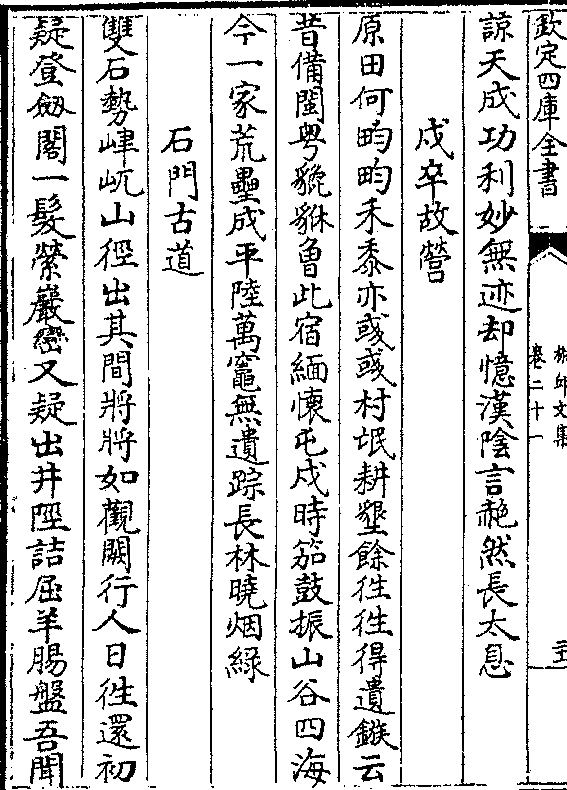 欽定四庫全書
卷二十一
諒天成功利妙無迹却憶漢陰言赩然長太息
戍卒故營
原田何畇畇禾黍亦彧彧村氓耕墾餘徃徃得遺鏃云
昔備閩粤貔貅魯此宿緬懷屯戍時笳鼓振山谷四海
今一家荒壘成平陸萬竈無遺踪長林曉烟綠
石門古道
雙石勢峍屼山徑出其間將將如觀闕行人日徃還初
疑登劒閣一髮縈巖巒又疑出井陘詰屈羊腸盤吾聞